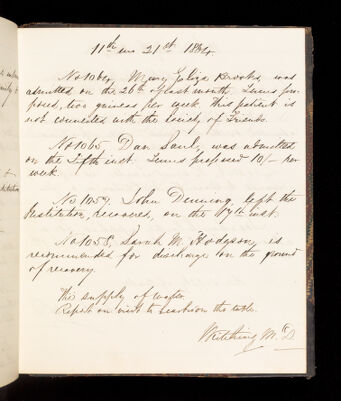 11th mo 21st 1864.
No 1064, Mary Eliza Brooks, was
admitted on the 26th of last month. Terms pro-
posed, two guineas per week. This patient is
not connected with the Society of Friends.
No 1065 Dan Saul, was admitted
on the Fifth inst. Terms proposed 10/- per
week.
No 1059. John Denning, left the
Institution, recovered, on the 17th inst.
No 1058, Sarah M. Hodgson, is
recommended for discharge on the ground
of recovery.
The supply of water.
Report on visit to on the table.
Kitching M.D